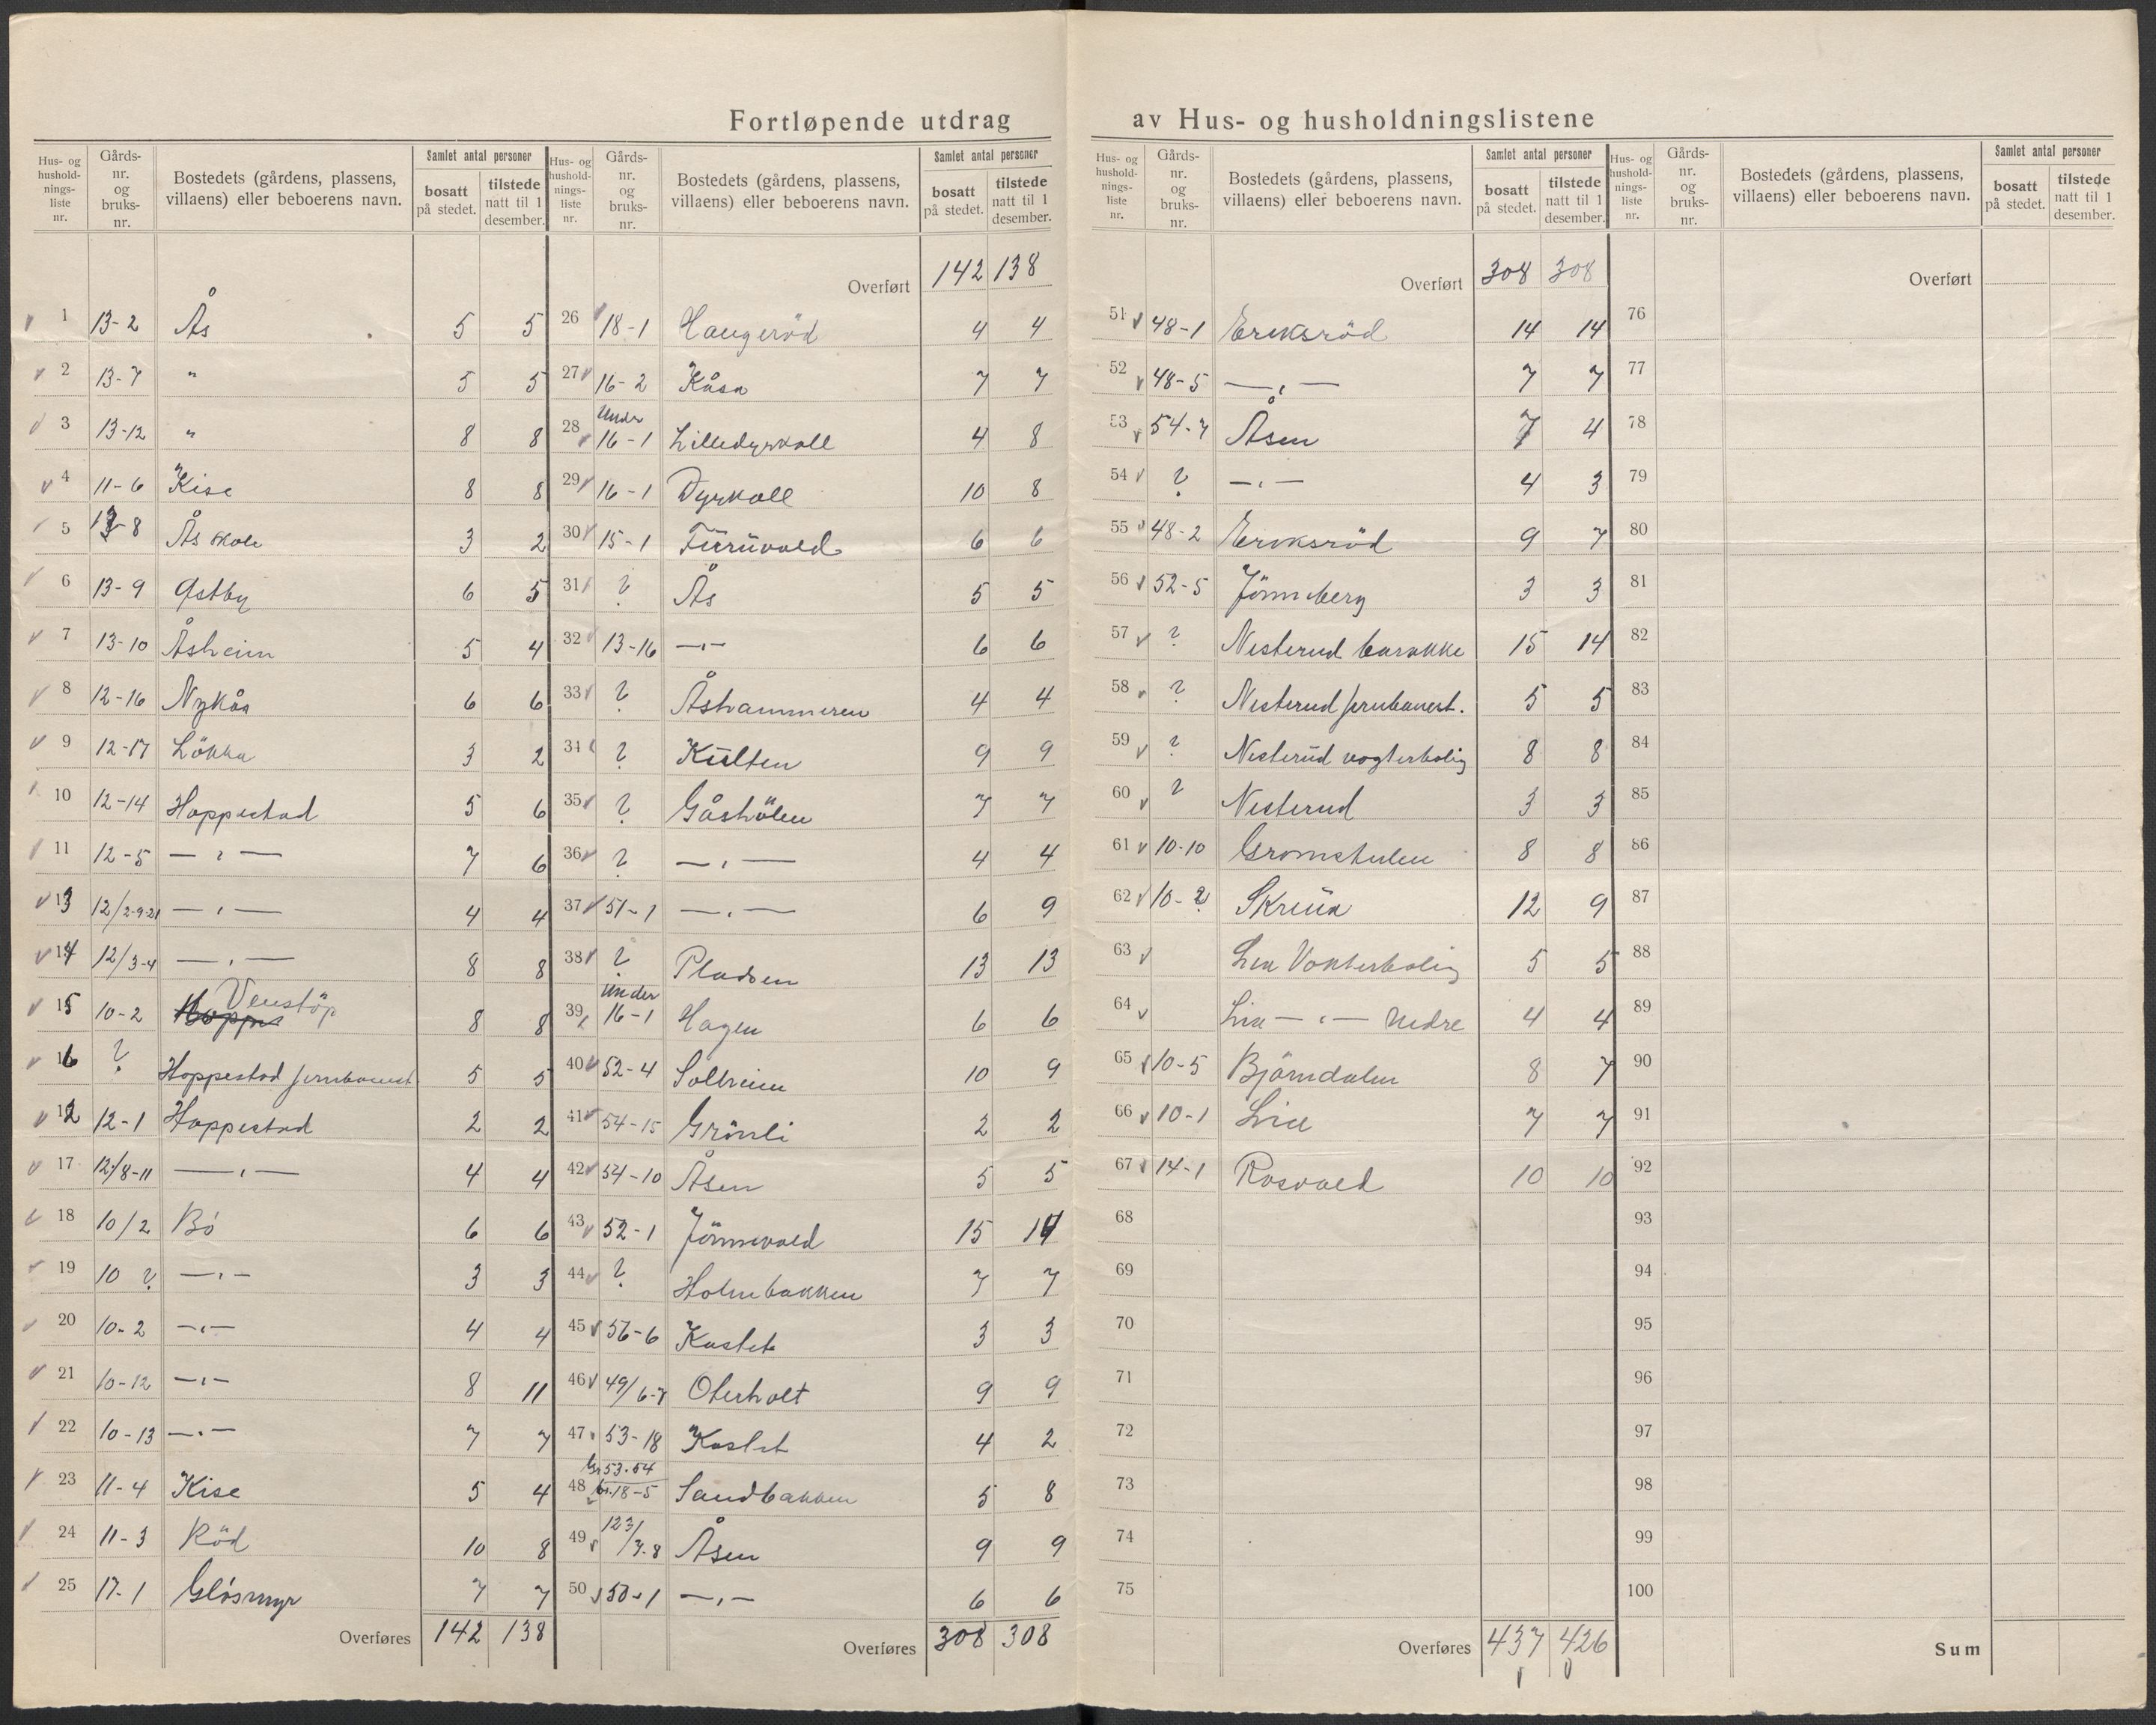 Fortløpende utdrag av Hus- og husholdningslistene
Hus- og hushold-nings-liste nr. | Gårds-nr. og bruks-nr. | Bostedets (gårdens, plassens, villaens) eller beboerens navn. | Samlet antal personer | bosatt på stedet. | tilstede natt til 1 desember.
1 13-2 Ås 5 5
2 13-7 " 5 5
3 13-12 " 8 8
4 11-6 Kise 8 8
5 13-8 Ås skole 3 2
6 13-9 Østby 6 5
7 13-10 Åsheim 5 4
8 12-16 Nykås 6 6
9 12-17 Lökka 3 2
10 12-14 Hoppestad 5 6
11 12-5 — " — 7 6
13 12/2-9-21 — " — 4 4
14 12/3-4 — " — 8 8
15 10-2 Venstöp 8 8
16 ? Hoppestad jernbanest. 5 5
12 12-1 Hoppestad 2 2
17 12/8-11 — " — 4 4
18 10/2 Bö 6 6
19 10 ? — " — 3 3
20 10-2 — " — 4 4
21 10-12 — " — 8 11
22 10-13 — " — 7 7
23 11-4 Kise 5 4
24 11-3 Röd 10 8
25 17-1 Glösmyr 7 7
Overføres 142 138
Hus- og hushold-nings-liste nr. | Gårds-nr. og bruks-nr. | Bostedets (gårdens, plassens, villaens) eller beboerens navn. | Samlet antal personer | bosatt på stedet. | tilstede natt til 1 desember.
Overført 142 138
26 18-1 Haugeröd 4 4
27 16-2 Kåsa 7 7
28 Under 16-1 Lilledyrkoll 4 8
29 16-1 Dyrkoll 10 8
30 15-1 Furuvald 6 6
31 ? Ås 5 5
32 13-16 — " — 6 6
33 ? Åshammeren 4 4
34 ? Kulten 9 9
35 ? Gåshölen 7 7
36 ? — " — 4 4
37 51-1 — " — 6 9
38 ? Pladsen 13 13
39 Under 16-1 Hagen 6 6
40 52-4 Solheim 10 9
41 54-15 Grönli 2 2
42 54-10 Åsen 5 5
43 52-1 Jönnevald 15 14
44 ? Holmbakken 7 7
45 56-6 Kastet 3 3
46 49/6-7 Oterholt 9 9
47 53-18 Kastet 4 2
48 Gr 53.54 Br. 18-5 Sandbakken 5 8
49 123/3-8 Åsen 9 9
50 50-1 — " — 6 6
Overføres 308 308
Hus- og hushold-nings-liste nr. | Gårds-nr. og bruks-nr. | Bostedets (gårdens, plassens, villaens) eller beboerens navn. | Samlet antal personer | bosatt på stedet. | tilstede natt til 1 desember.
Overført 308 308
51 48-1 Eriksröd 14 14
52 48-5 — " — 7 7
53 54-7 Åsen 7 4
54 ? — " — 4 3
55 48-2 Eriksröd 9 7
56 52-5 Jönneberg 3 3
57 ? Nisterud barakke 15 14
58 ? Nisterud jernbanest. 5 5
59 ? Nisterud vogterbolig 8 8
60 ? Nisterud 3 3
61 10-10 Gromstulen 8 8
62 10-2 Skreua 12 9
63 Lia Vokterbolig 5 5
64 Lia — " — nedre 4 4
65 10-5 Björndalen 8 7
66 10-1 Lia 7 7
67 14-1 Rosvald 10 10
68
69
70
71
72
73
74
75
Overføres 437 426
Hus- og hushold-nings-liste nr. | Gårds-nr. og bruks-nr. | Bostedets (gårdens, plassens, villaens) eller beboerens navn. | Samlet antal personer | bosatt på stedet. | tilstede natt til 1 desember.
Overført
76
77
78
79
80
81
82
83
84
85
86
87
88
89
90
91
92
93
94
95
96
97
98
99
100
Sum